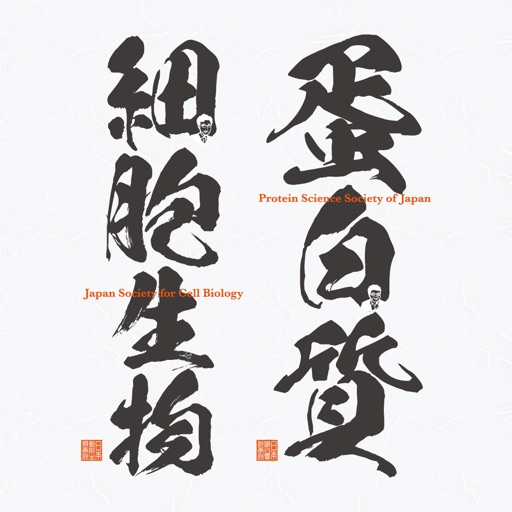 蛋白質
Protein Science Society of Japan
細胞生物
Japan Society for Cell Biology